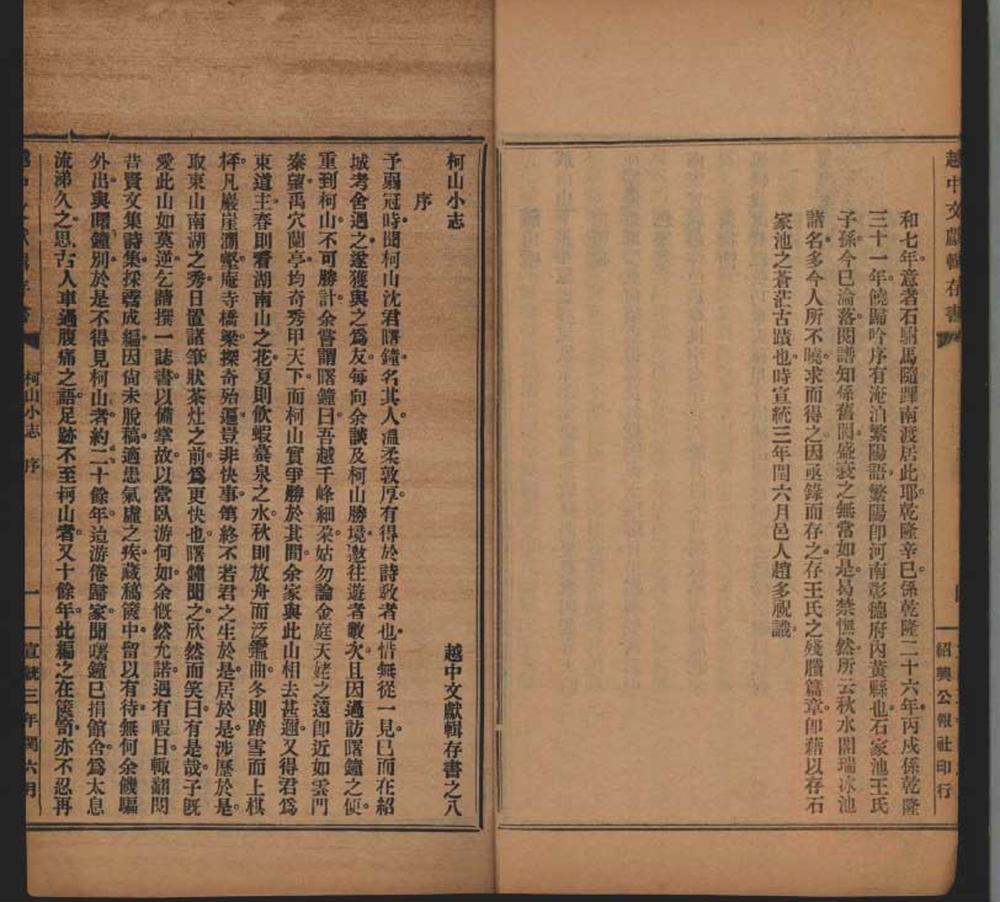 越中文獻輯存書
紹興公報社印行
和七年意者石駙馬隨蹕南渡居此耶乾隆辛巳係乾隆二十六年丙戌係乾隆
三十一年饒歸吟序有淹泊繁陽語繁陽卽河南彰德府內黃縣也石家池王氏
子孫今已淪落閱譜知係舊閥盛衰之無常如是曷禁憮然所云秋水閣瑞泳池
諸名多今人所不曉求而得之因亟錄而存之存王氏之殘賸篇章卽藉以存石
家池之蒼茫古蹟也時宣統三年閏六月邑人趙多祝識
柯山小志
越中文獻輯存書之八
序
予弱冠時聞柯山沈君曙鐘名其人溫柔敦厚有得於詩敎者也惜無從一見已而在紹
城考舍遇之遂獲與之爲友每向余談及柯山勝境邀往遊者數次且因過訪曙鐘之便
重到柯山不可勝計余嘗謂曙鐘曰吾越千峰細朶姑勿論金庭天姥之遠卽近如雲門
秦望禹穴蘭亭均奇秀甲天下而柯山實爭勝於其間余家與此山相去甚邇又得君爲
東道主春則看湖南山之花夏則飮蝦蟇泉之水秋則放舟而泛鑑曲冬則踏雪而上棋
枰凡巖崖澗壑庵寺橋梁探奇殆遍豈非快事第終不若君之生於是居於是涉歷於是
取東山南湖之秀日置諸筆牀茶灶之前爲更快也曙鐘聞之欣然而笑曰有是哉子旣
愛此山如莫逆乞請撰一誌書以備掌故以當臥游何如余慨然允諾遇有暇日輒翻閱
昔賢文集詩集採著成編因尙未脫稿適患氣虛之疾藏稿篋中留以有待無何余饑驅
外出與曙鐘別於是不得見柯山者約二十餘年迨游倦歸家聞曙鐘已捐館舍爲太息
流涕久之思古人車過腹痛之語足跡不至柯山者又十餘年此編之在篋笥亦不忍再
柯山小志 序
一
宣統三年閏六月